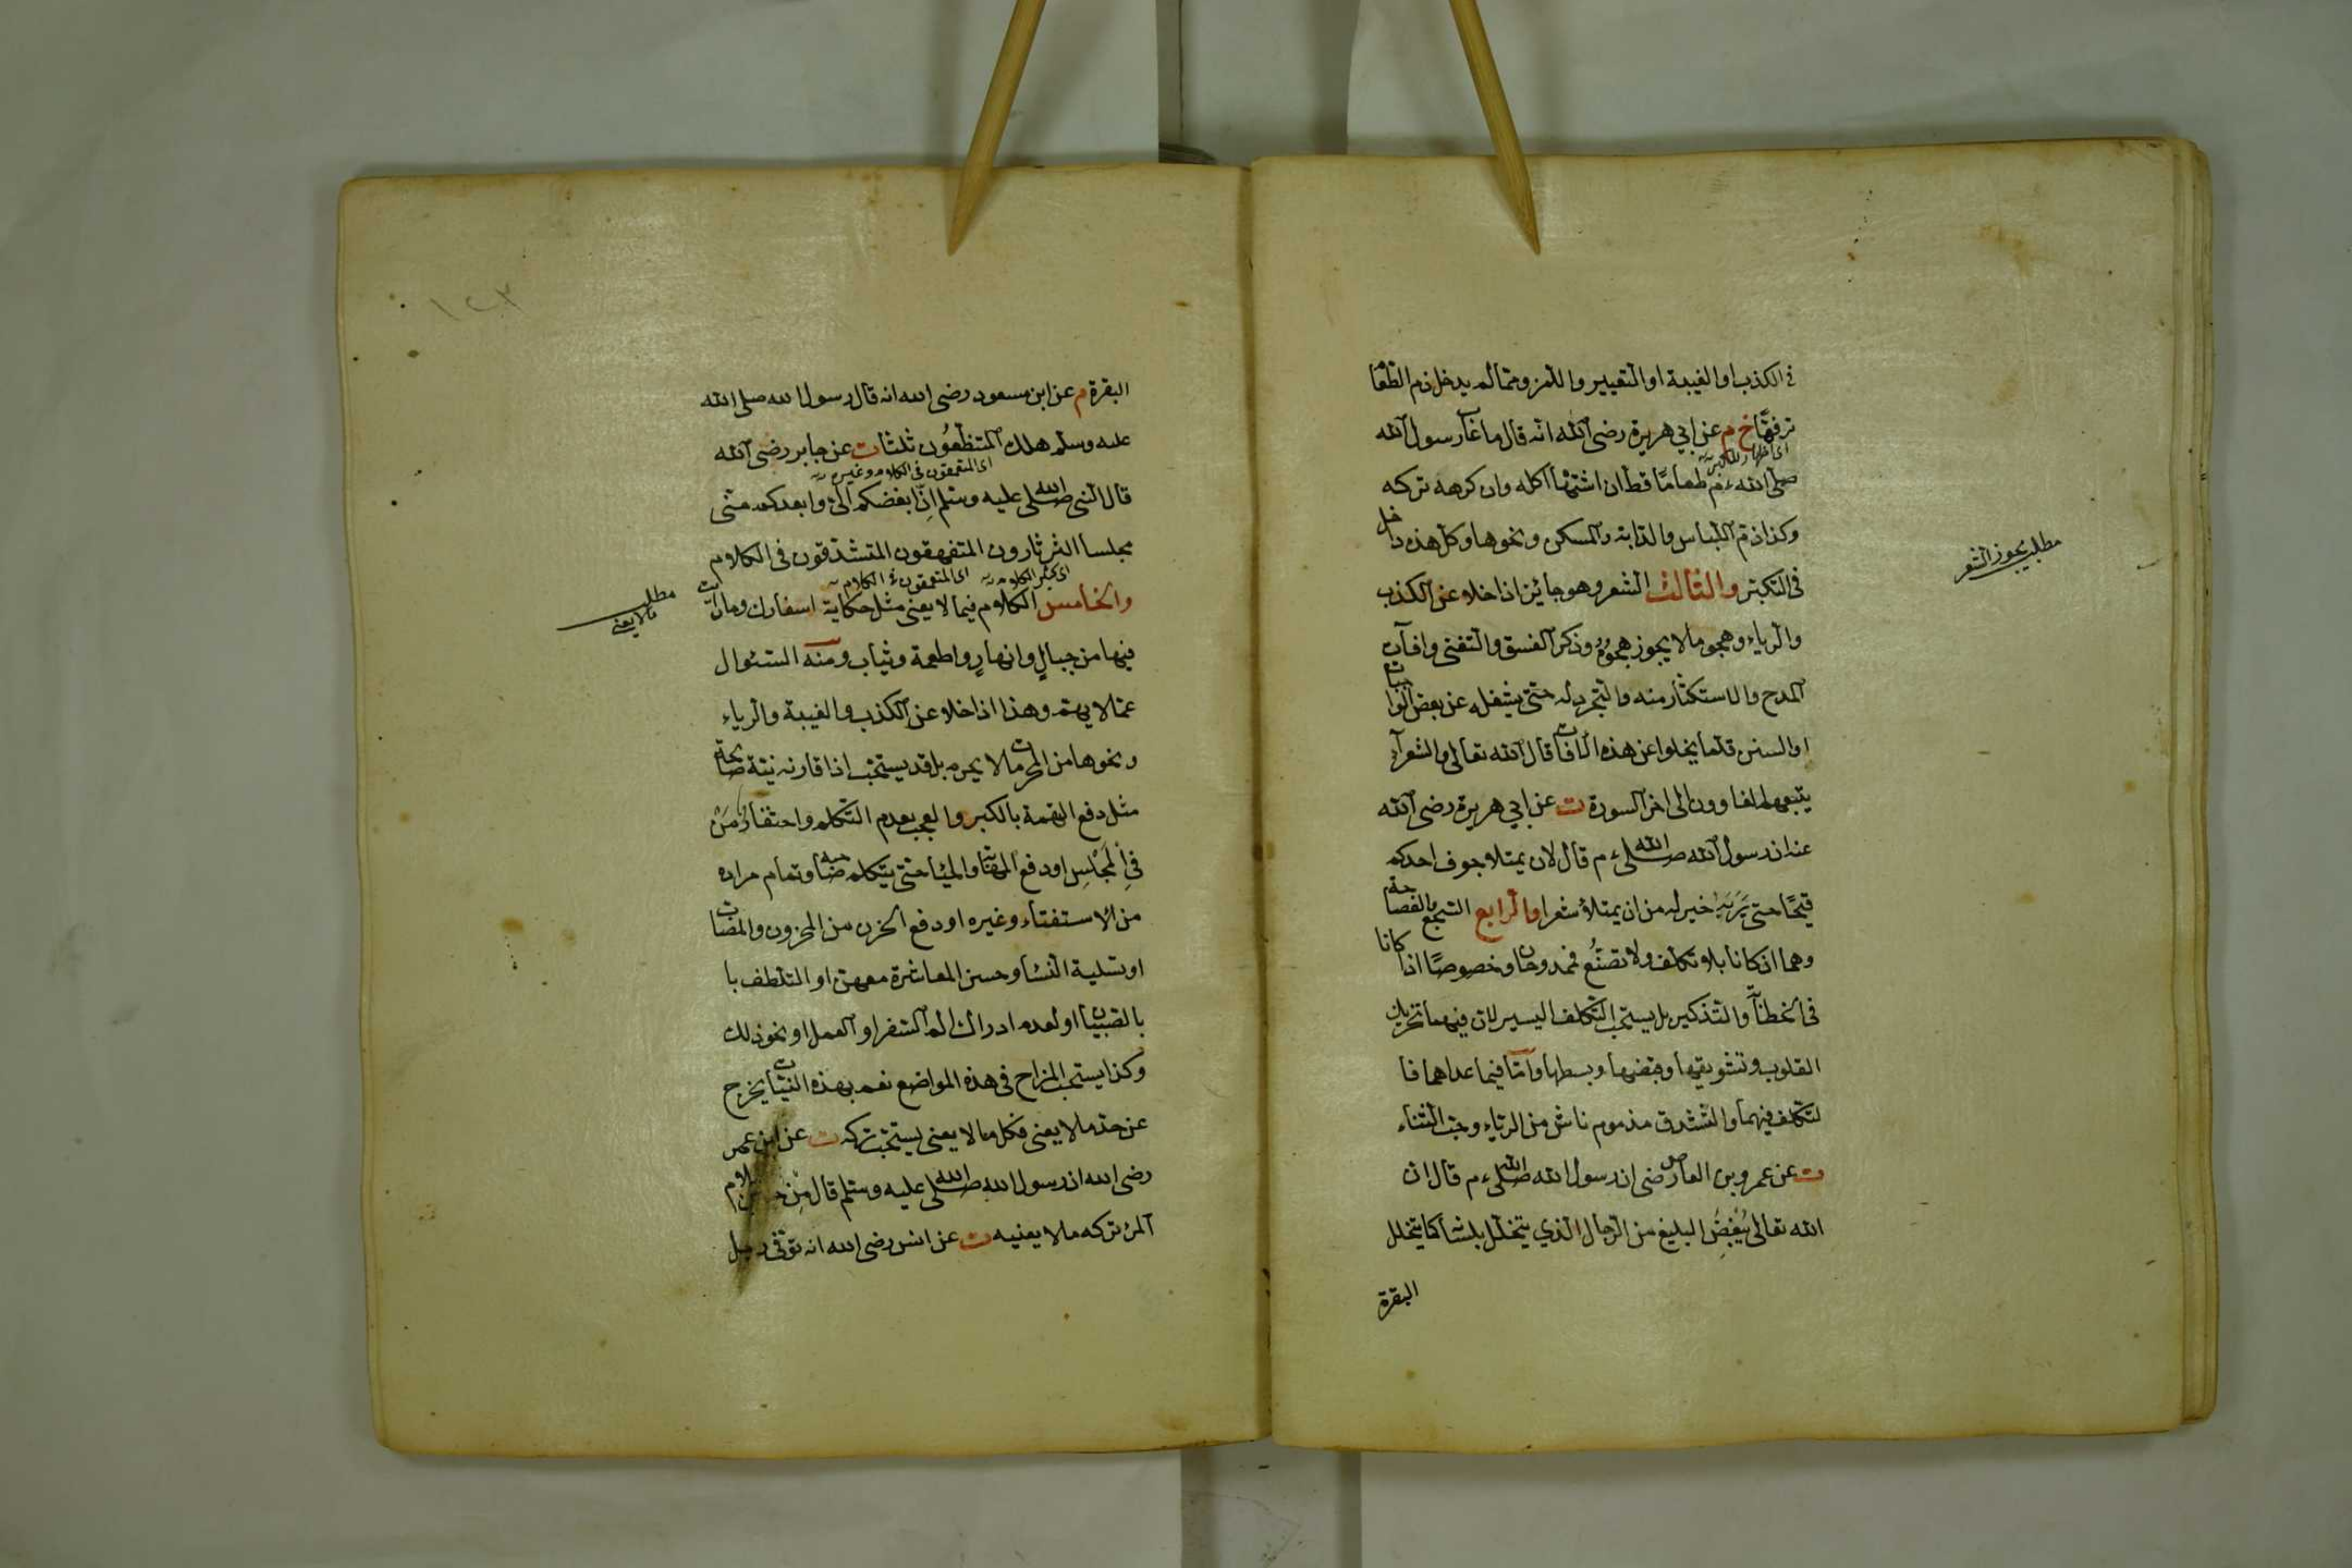 فى الكذب او الغيبة او التعيير واللمز ومما لم يدخل ذم الطعا
ترفها خ م عن ابي هريرة رضى الله انه قال ما عاب رسول الله
صلى الله ء م طعاما قط ان اشتها اكله وان كرهه تركه
وكذا ذم اللباس والدابة والمسكن ونحوها وكل هذه داخل
فى التكبر والثالث الشعر وهو جائز اذا خلا عن الكذب
مطلب يجوز الشعر
والرياء وهجو ما لا يجوز هجوه وذكر الفسق والتغنى وافات
المدح والاستكثار منه والتجرد له حتى يشغله عن بعض الواجبات
او السنن قلما يخلوا عن هذه الافات قال الله تعالى والشعرآء
يتبعهم الغاوون الى اخر السورة ت عن ابي هريرة رضى الله
عنه ان رسول الله صلى الله ء م قال لان يمتلا جوف احدكم
قيحا حتى يريه خير له من ان يمتلأ شعرا والرابع السجع والفصاحة
وهما ان كانا بلا تكلف ولا تصنع فممدوحان وخصوصا اذا كانا
فى الخطابة والتذكير بل يستحب التكلف اليسير لان فيهما تحريك
القلوب وتشويقها وقبضها وبسطها واما فيما عداهما فا
لتكلف فيهما والتشدق مذموم ناش من الرياء وحب الثناء
ت عن عمرو بن العاص رضى ان رسول الله صلى الله ء م قال ان
الله تعالى يبغض البليغ من الرجال الذي يتخلل بلسا كما يتخلل
البقرة
١٢٣
البقرة م عن ابن مسعود رضى الله انه قال رسول الله صلى الله
عليه وسلم هلك المتنطعون ثلثا ت عن جابر رضى الله
اى المتعمقون فى الكلام وغيره
قال النبى صلى الله عليه وسلم ان ابغضكم الى وابعدكم منى
مجلسا الثرثارون المتفهقون المتشدقون فى الكلام
اى كثير الكلام اى المتعمقون فى الكلام
والخامس الكلام فيما لا يعنى مثل حكاية اسفارك وما رايت
مطلب مالا يعنى
فيها من جبال وانهار واطعمة وثياب ومنه السئوال
عما لا يهم وهذا اذا خلا عن الكذب والغيبة والرياء
ونحوها من المحرمات لا يحرم بل قد يستحب اذا قارنه نية صالحة
مثل دفع التهمة بالكبر والعجب بعدم التكلم واحتقار من
فى المجلس او دفع المهابة والحيا حتى يتكلم صاحبه تمام مراده
من الاستفتاء وغيره او دفع الحزن من المحزون والمصاب
او تسلية النسا وحسن المعاشرة معهن او التلطف با
بالصبيان او لعدم ادراك الم السفر او العمل او نحو ذلك
وكذا يستحب المزاح فى هذه المواضع نعم بهذه النيات يخرج
عن حد ما لا يعنى فكل ما لا يعنى يستحب تركه ت عن ابن عمر
رضى الله ان رسول الله صلى الله عليه وسلم قال من
المرء تركه ما لا يعنيه ت عن انس رضى الله انه توفى رجل